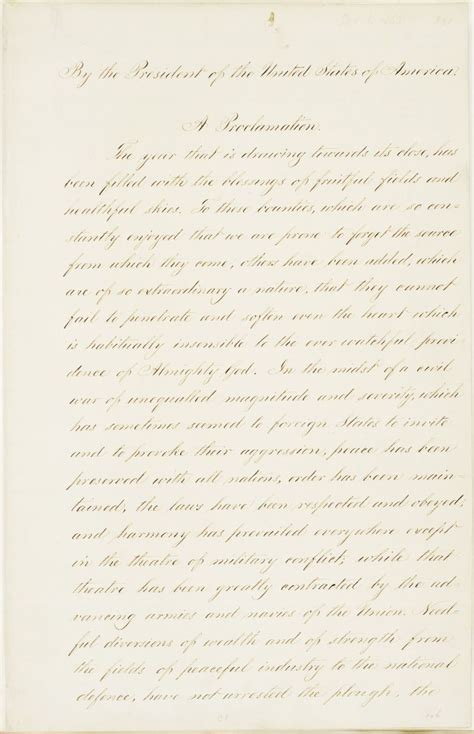 By the President of the United States of America:
A Proclamation.
The year that is drawing towards its close, has
been filled with the blessings of fruitful fields and
healthful skies. To these bounties, which are so con-
stantly enjoyed that we are prone to forget the source
from which they come, others have been added, which
are of so extraordinary a nature, that they cannot
fail to penetrate and soften even the heart which
is habitually insensible to the ever watchful provi-
dence of Almighty God. In the midst of a civil
war of unequalled magnitude and severity, which
has sometimes seemed to foreign States to invite
and to provoke their aggression, peace has been
preserved with all nations, order has been main-
tained, the laws have been respected and obeyed,
and harmony has prevailed everywhere except
in the theatre of military conflict; while that
theatre has been greatly contracted by the ad-
vancing armies and navies of the Union. Need-
ful diversions of wealth and of strength from
the fields of peaceful industry to the national
defence, have not arrested the plough, the